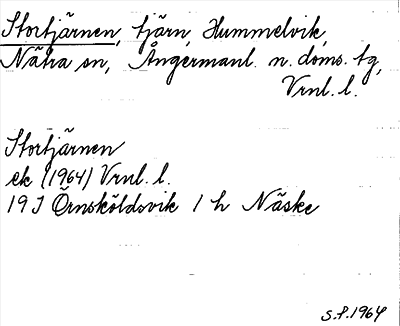 Stortjärnen, tjärn, Hummelvik,
Nätra sn, Ångermanl. n. doms. tg,
Vrnl. l.
Stortjärnen
ek (1964) Vrnl. l.
19 J Örnsköldsvik 1 h Näske
S.P. 1964